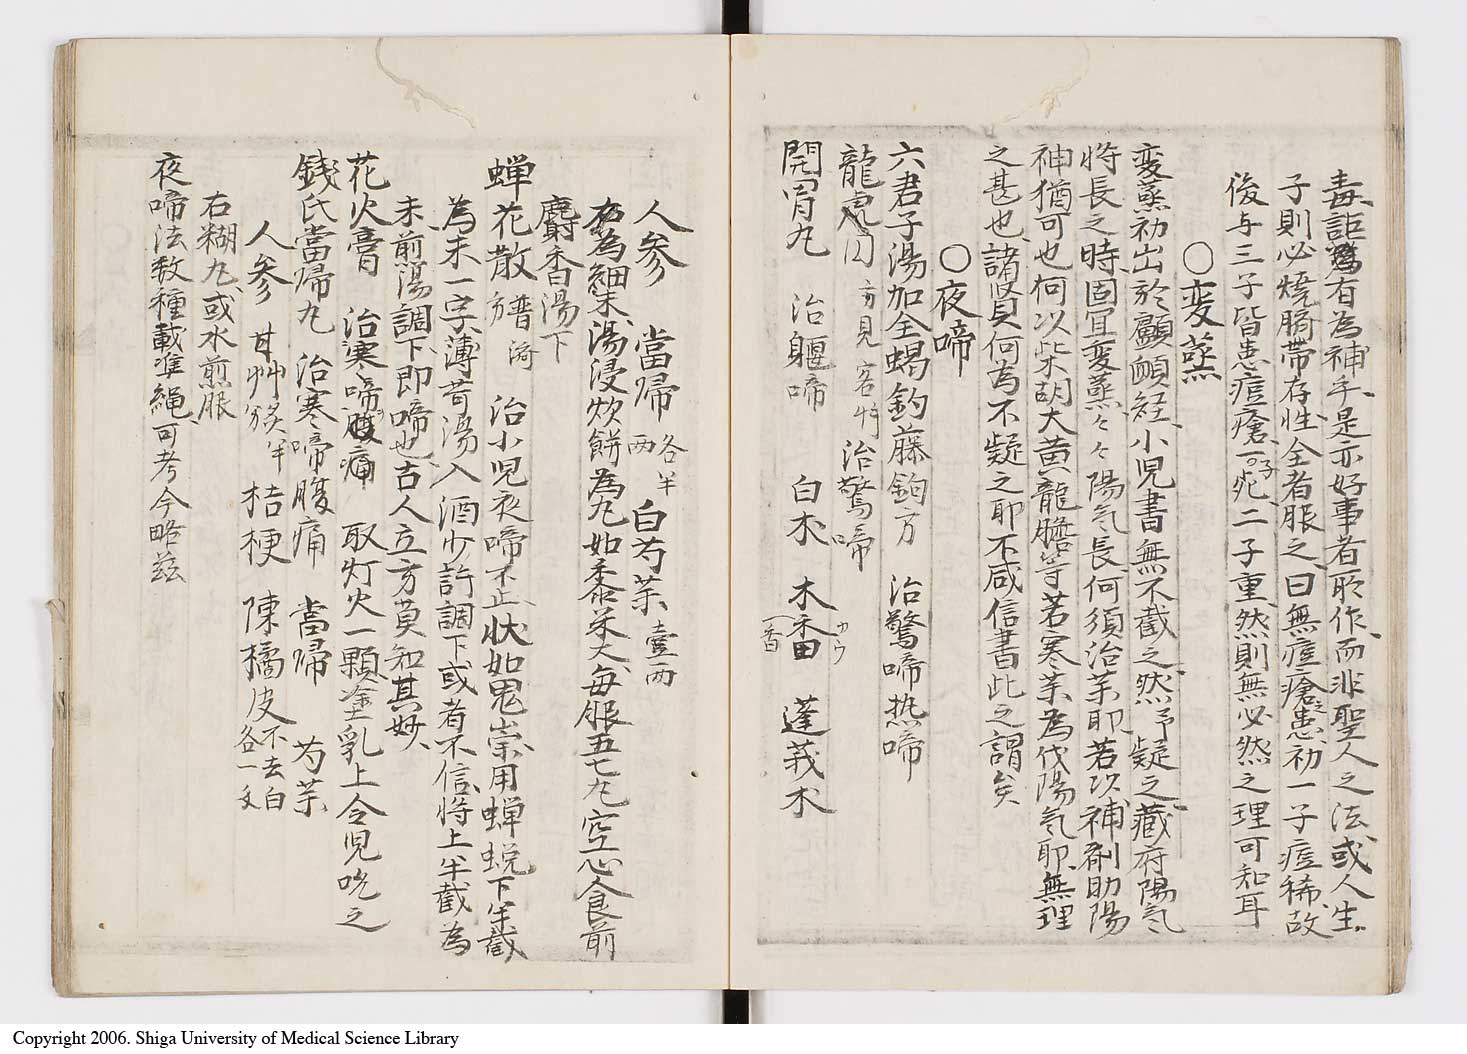 毒詎爲有為補乎是亦好事者所作而非聖人之法或人生
子則必燒臍帶存性全者服之曰無痘瘡患初一子痘稀故
後与三子皆患痘瘡一子死二子重然則無必然之理可知耳
〇変蒸
変蒸初出於顱顖経小児書無不載之然予疑之藏府陽氣
将長之時固宜変蒸々々陽氣長何須治茅耶若以補劑助陽
神猶可也何以柴胡大黄龍膽等苦寒茅為伐陽氣耶無理
之甚也諸賢何為不疑之耶不咸信書此之謂矣
〇夜啼
六君子湯加全蝎釣藤鉤方 治驚啼熱啼
龍虎囚 方見客忤 治驚啼
開胃丸 治軀啼 白朮 木香 カウ 一香 蓬莪朮
人参 當帰 各半両 白芍茅 壹両
右為細末湯浸炊餅為丸如黍米大毎服五七丸空心食前
麝香湯下
蝉花散 普済方 治小児夜啼不止状如鬼祟用蝉蛻下半截
為末一字薄荷湯入酒少許調下或者不信将上半截為
末前湯調下即啼也古人立方莫知其妙
花火膏 治寒啼腹痛 取灯火一顆塗乳上令児吮之
銭氏當帰丸 治寒啼腹痛 當帰 芍茅
人参 甘艸炙半 桔梗 陳橘皮不去白各一文
右糊丸或水煎服
夜啼法数種載準縄可考今略茲
Copyright 2006. Shiga University of Medical Science Library